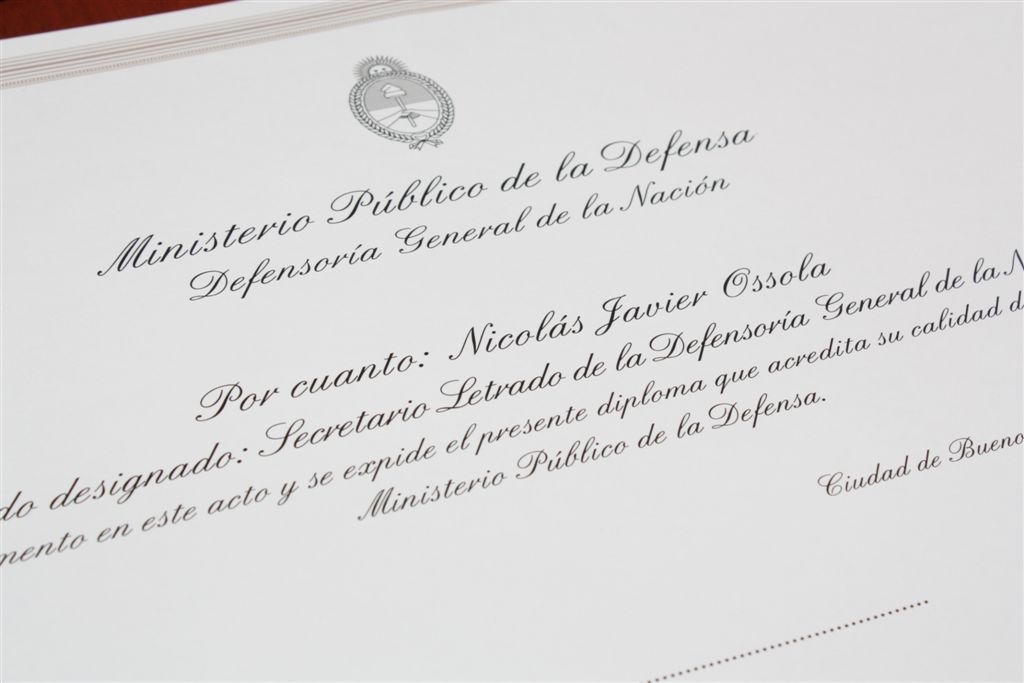 Ministerio Público de la Defensa
Defensoría General de la Nación
Por cuanto: Nicolás Javier Ossola
do designado: Secretario Letrado de la Defensoría General de la N
mento en este acto y se expide el presente diploma que acredita su calidad d
Ministerio Público de la Defensa.
Ciudad de Bueno